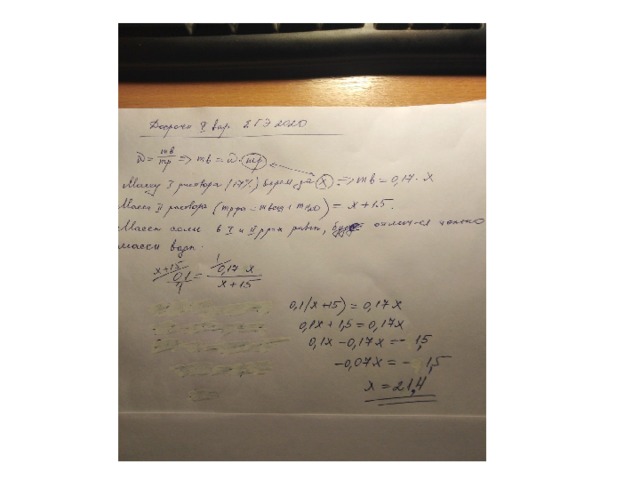 Досрочн вар. ЕГЭ 2020
ω = mв/mр => mв = ω · mр
Массу I раствора (17%) берем за x => mв = 0,17 · x
Масса II раствора (mр-ра = mвещ + mH2O) = x + 15.
Масса соли в I и II р-ри равны, отличается только
масса воды.
x+15 0,1/1 = 1 0,17·x/x+15
0,1(x+15) = 0,17x
0,1x + 1,5 = 0,17x
0,1x - 0,17x = - 1,5
-0,07x = - 1,5
x = 21,4